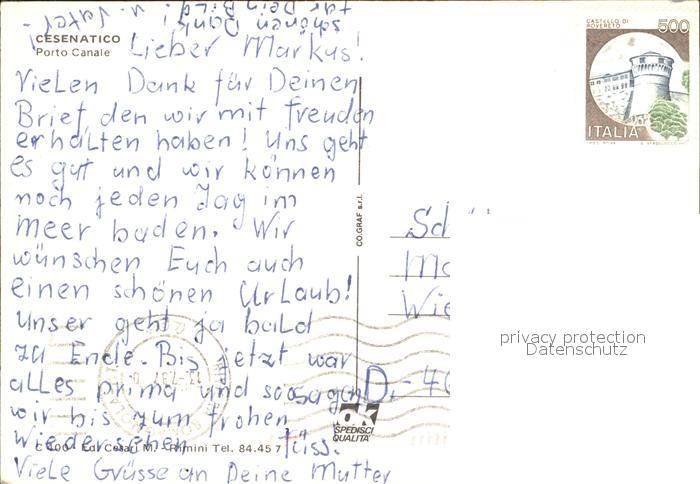 schönen Dank!
CESENATICO
Porto Canale
Lieber Markus!
Vielen Dank für Deinen
Brief den wir mit freuden
erhalten haben! Uns geht
es gut und wir können
noch jeden Tag im
Meer baden. Wir
wünschen Euch auch
einen schönen Urlaub!
Unser geht ja bald
zu Ende. Bis jetzt war
alles prima und so sagen
wir bis zum frohen
Wiedersehen tüss.
Viele Grüsse an Deine Mutter
Edi Cesari M. - Rimini Tel. 84.45 7
CO.GRAF s.r.l.
SPEDISCI
QUALITA'
CASTELLO DI
ROVERETO
500
ITALIA
D.-
privacy protection
Datenschutz